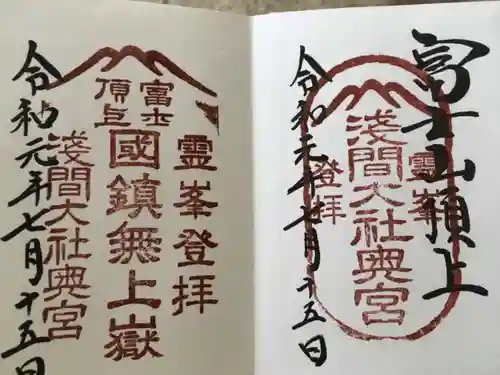 富士山頂上
霊峯登拝
浅間大社奥宮
令和元年七月十五日
霊峯登拝
富士頂上
國鎮無上嶽
浅間大社奥宮
令和元年七月十五日